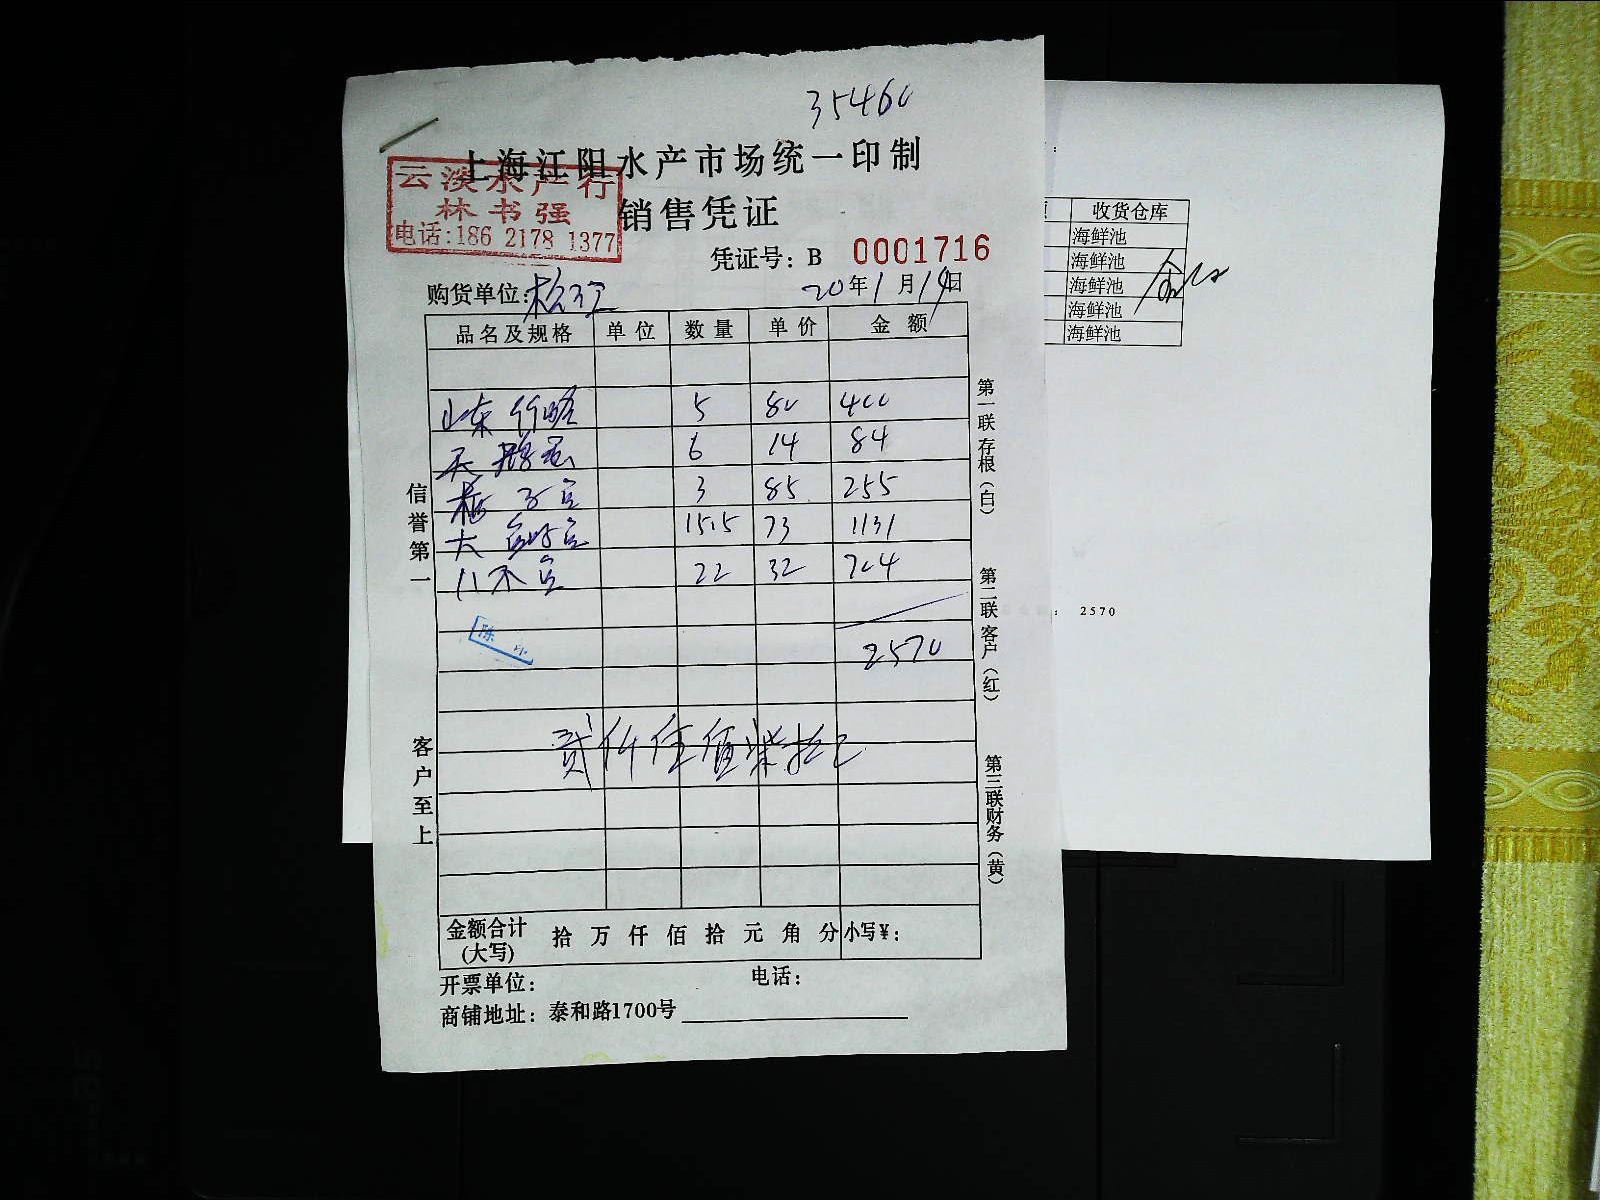 35460
上海江阳水产市场统一印制
云淡水产行
林书强
电话:186 2178 1377
销售凭证
凭证号: B 0001716
购货单位: 松江 20年1月19日
品名及规格 单位 数量 单价 金额
山东竹蛏 5 80 400
天鹅蛋 6 14 84
3 85 255
大 15.5 73 1131
22 32 704
2570
贰仟伍佰柒拾元
金额合计(大写) 拾 万 仟 佰 拾 元 角 分 小写¥:
开票单位: 电话:
商铺地址: 泰和路1700号
信誉第一
客户至上
第一联存根(白)
第二联客户(红)
第三联财务(黄)
收货仓库
海鲜池
海鲜池
海鲜池
海鲜池
海鲜池
: 2570